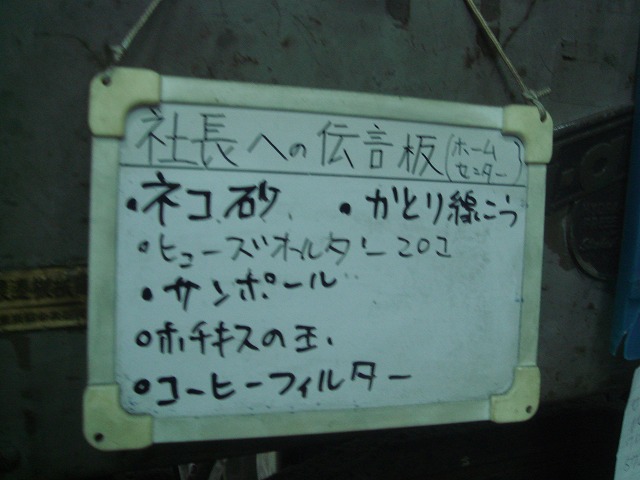 社長への伝言板(ホームセンター)
・ネコ砂 ・かとり線こう
・ヒューズホルダー20コ
・サンポール
・ホチキスの玉
・コーヒーフィルター